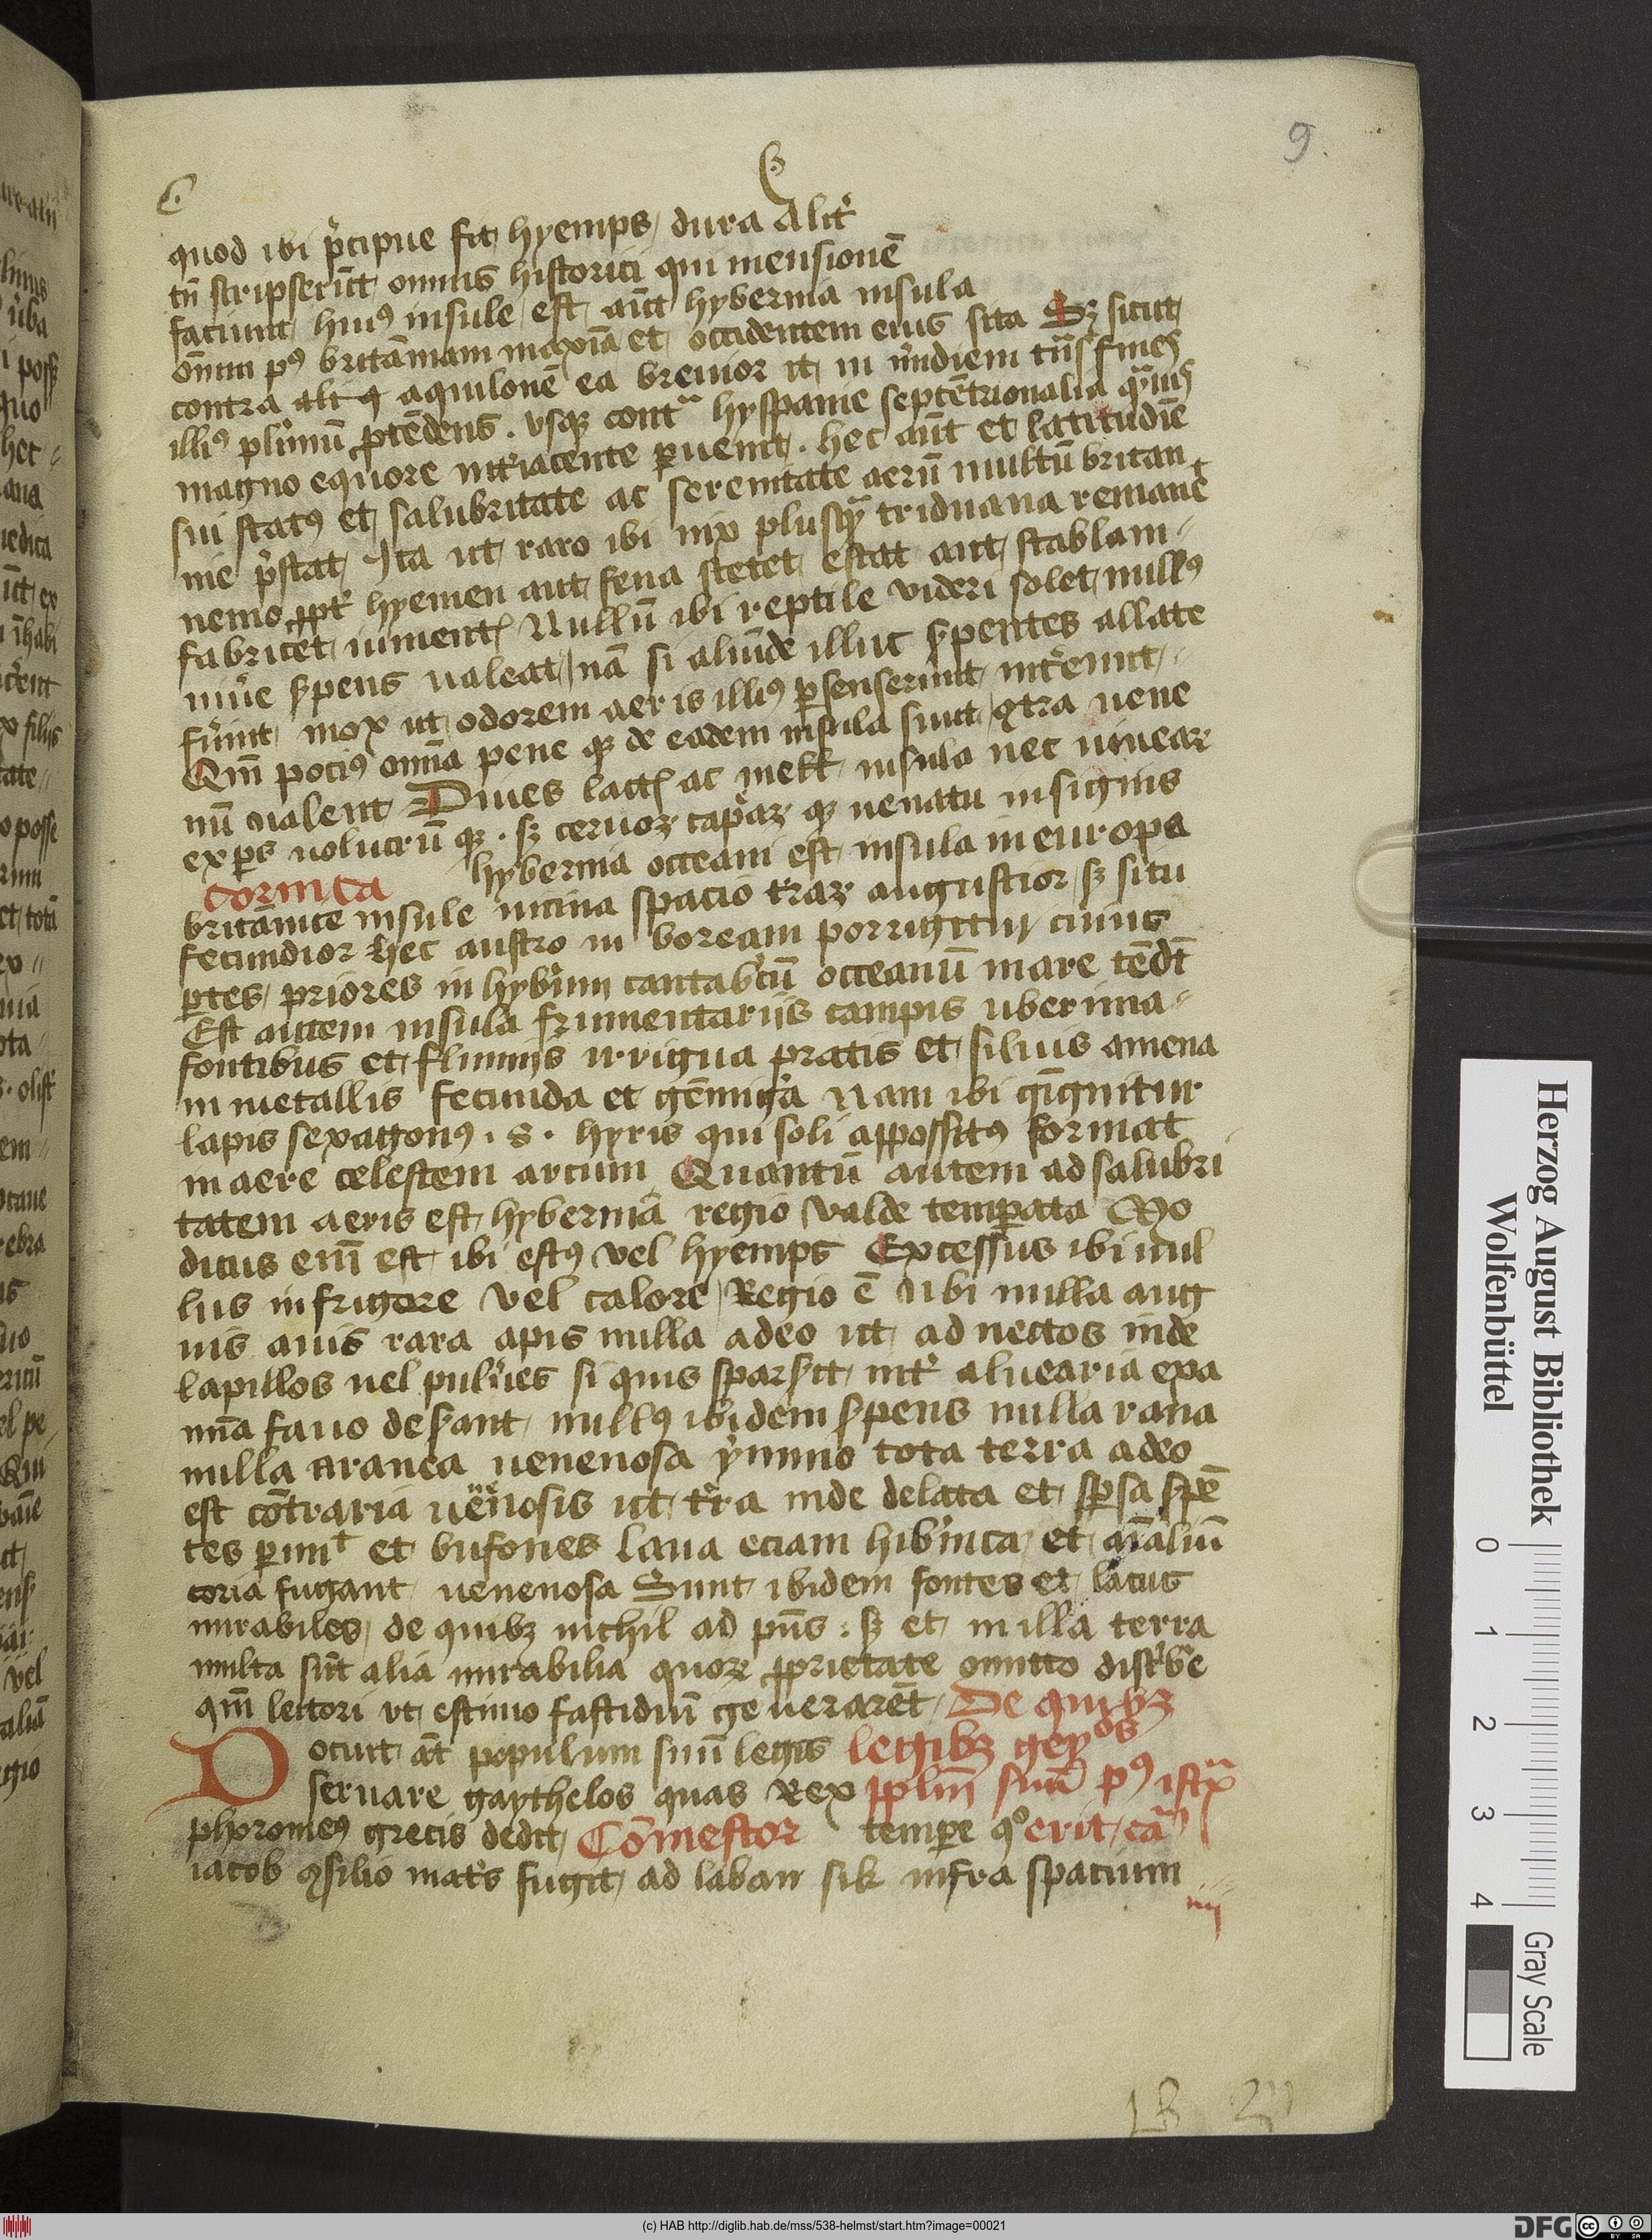 9.
quod ibi p̃cipue fit hyemps dura Alit̉
tñ scripserūt omnis historici qui mensionē
faciunt hui9 insule est aūt hybernia insula
ōnium p9 britānniam maxīa et occidentem eius sita Sꝫ sicut
contra aquilonē ea breuior it in m̉idiem
illi9 plimū ꝓtēdens . vsqꝫ contᵃ hyspanie septētrionalia
magno equore int̉iacente ꝑuenit . hec aūt et latitudīe
sui stat9 et salubritate ac serenitate aerū multū britan
nie p̃stat Ita ut raro ibi nix plusqᵃ triduana remanet
nemo ꝓpt̉ hyemen aut fena secet estat aut stablam
fabricet iument Nullū ibi reptile videri solet null9
niue s̉pens ualeat nā si aliūde illuc s̉pentes allate
fūint mox ut odorem aeris illi9 ꝑsenserīnt int̉eunt
Qīn poci9 omīa pene qꝫ de eadem insula sunt 9tra uene
nū ualent Diues lactꝭ ac mell insula nec uineaꝝ
exꝑs uolucrū qꝫ . sꝫ ceruoꝝ capaꝝ qꝫ uenatu insignis
cornica hybernia occeani est insula in europa
britānnice insule uicina spacio t̉raꝝ angustior sꝫ situ
fecundior hec austro in boream porrigitur cuius
ꝑtes priores in hyb̉nium cantab̉cū occeanū mare tēdt̄
Est autem insula frumentarijs campis uberima
fontibus et fluminis irrigua pratis et siluis amena
in metallis fecunda et gēmig̉a Nam ibi gīgnitur
lapis sexagon9 . s . hyris qui soli appossit9 format
in aere celestem arcum Quantū autem ad salubri
tatem aeris est hybernia regio valde temꝑata Mo
dicus enī est ibi est9 vel hyemps Excessus ibi nul
lus in frigore vel calore Regio ē ubi nulla ang
uis auis rara apis nulla adeo ut aduectos inde
lapillos uel puluies si quis sparsit int̉ aluearia exa
mīa fauo des̉ant null9 ibidem s̉pens nulla rana
nulla aranea uenenosa ymmo tota terra adeo
est cōntraria uēnosis ut t̉ra inde delata et sꝑsa s̉pē
tes ꝑimᵗ et bufones Lana eciam hib̉nica et aīaliū
coria fugant uenenosa Sunt ibidem fontes et lacus
mirabiles de quibꝫ nichil ad pn̄s : sꝫ et in illa terra
multa sūt alia mirabilia quoꝝ ꝓprietate omitto disc̉b̉e
qm̄ lectori vt estimo fastidiū generarēt De quibꝫ
Docuit aūt populum suū leges legibꝫ
seruare gaythelos quas Rex pplm̄ suū p9 istᵃ
phorone9 grecis dedit Cōmestor tempe qᵒ erit cā
iacob 9silio mat̉s fugit ad laban sil infra spacium
iiij
Herzog August Bibliothek
Wolfenbüttel
0 1 2 3 4
Gray Scale
(c) HAB http://diglib.hab.de/mss/538-helmst/start.htm?image=00021
DFG